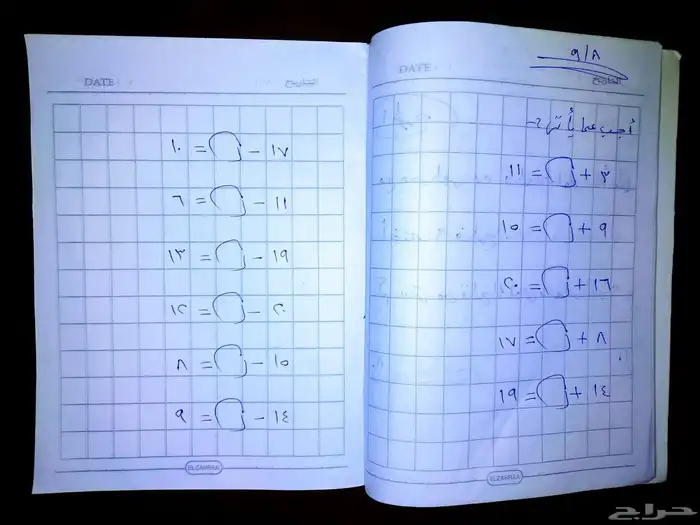 ٩/٨
DATE:
التاريخ
أجب عما يأتي :-
٣ + = ١١
٩ + = ١٥
١٦ + = ٢٠
٨ + = ١٧
١٤ + = ١٩
ELZAHRAA
DATE:
التاريخ
١٧ - = ١٠
١١ - = ٦
١٩ - = ١٣
٢٠ - = ١٢
١٥ - = ٨
١٤ - = ٩
ELZAHRAA
حراج